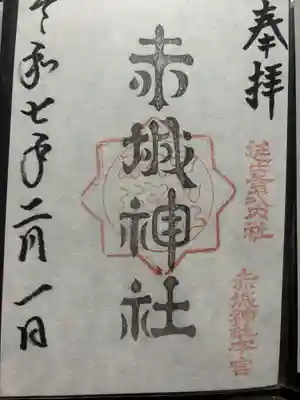 奉拝
赤城神社
赤城神社本宮
令和七年二月一日